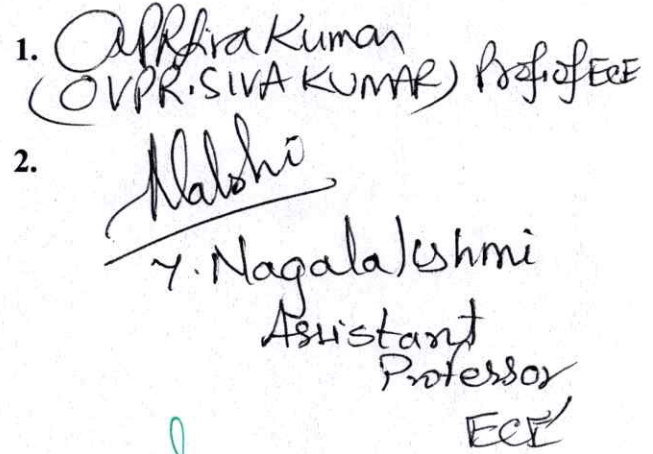 1. OVPRSiva Kumar
(OVPR.SIVA KUMAR) Prof. of ECE
2.
Y. Nagalakshmi
Assistant
Professor
ECE